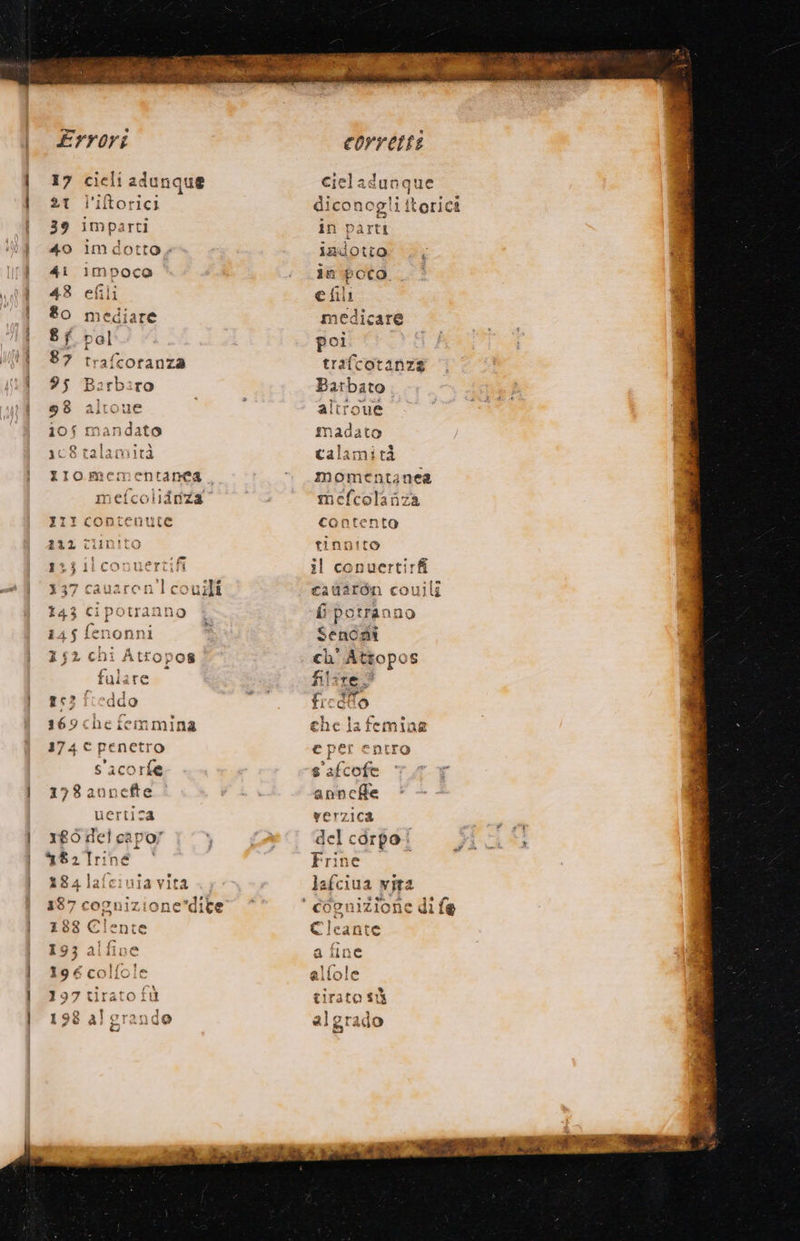 Errori corretti
17 cieli adunque cieladunque
21 l'iſtorici diconogli iſtorici
39 imparti in parti
40 im dotto indotto
41 impoco in poco
48 eſili e fili
80 mediare medicare
8f pol poi
87 traſcoranza traſcotanza
95 Barbaro Barbato
98 altoue altroue
105 mandato madato
108 talamità calamità
110 mementanea momentanea
meſcolidnza meſcolanza
111 contenute contento
112 tinito tinnito
113 il conuertifi il conuertirſi
137 cauaron'l couili cauaron couili
143 cipotranno ſi potranno
145 ſenonni Senoni
152 chi Atropos ch' Attopos
fulare filare
153 freddo freddo
169 che femmina che la femina
174 e penetro e per entro
s'acorſe s'aſcoſe
178 anneſte anneſſe
uertiza verzica
180 del capo' del corpo
182 Irine Frine
184 laſciuia vita laſciua vita
187 cognizione'dite cognizione di ſe
188 Clente Cleante
193 alfine a fine
196 colſole alſole
197 tirato fù tirato sù
198 al grando al grado